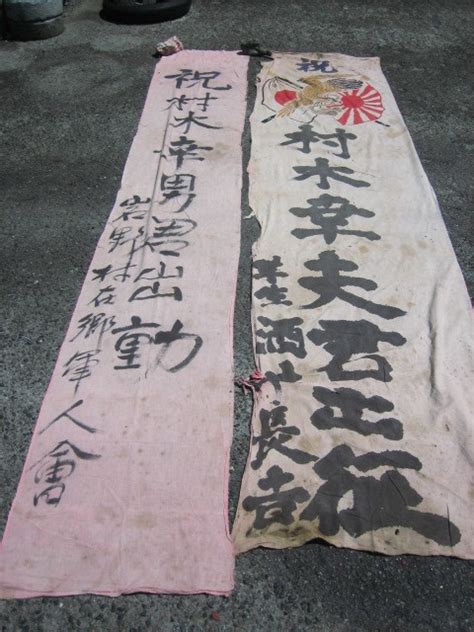 祝
村木幸夫君出征
長吉
祝村木幸男君出動
岩野村在郷軍人會